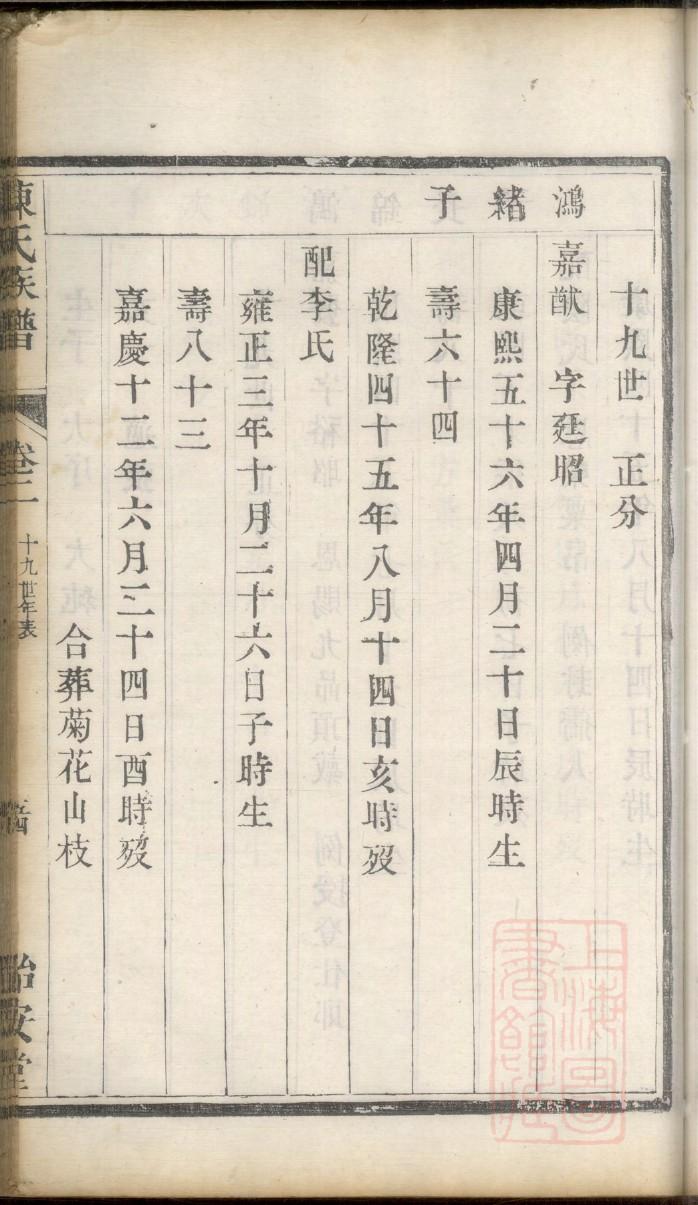 十九世 正分
鴻
嘉猷 字廷昭
緒
康熙五十六年四月二十日辰時生
子
壽六十四
乾隆四十五年八月十四日亥時歿
配李氏
雍正三年十月二十六日子時生
壽八十三
嘉慶十二年六月二十四日酉時歿
合葬菊花山枝
陳氏族譜 卷二 十九世年表 怡安堂
上海圖書館藏